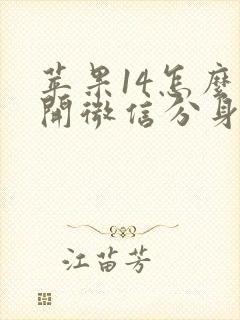 苹果14怎麼
開微信分身
江苗芳